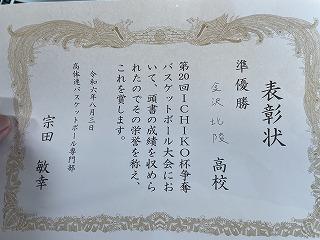 表彰状
準優勝
金沢北陵高校
第20回ICHIKO杯争奪
バスケットボール大会にお
いて、頭書の成績を収めら
れたのでその栄誉を称え、
これを賞します。
令和六年八月三日
高体連バスケットボール専門部
宗田 敏幸